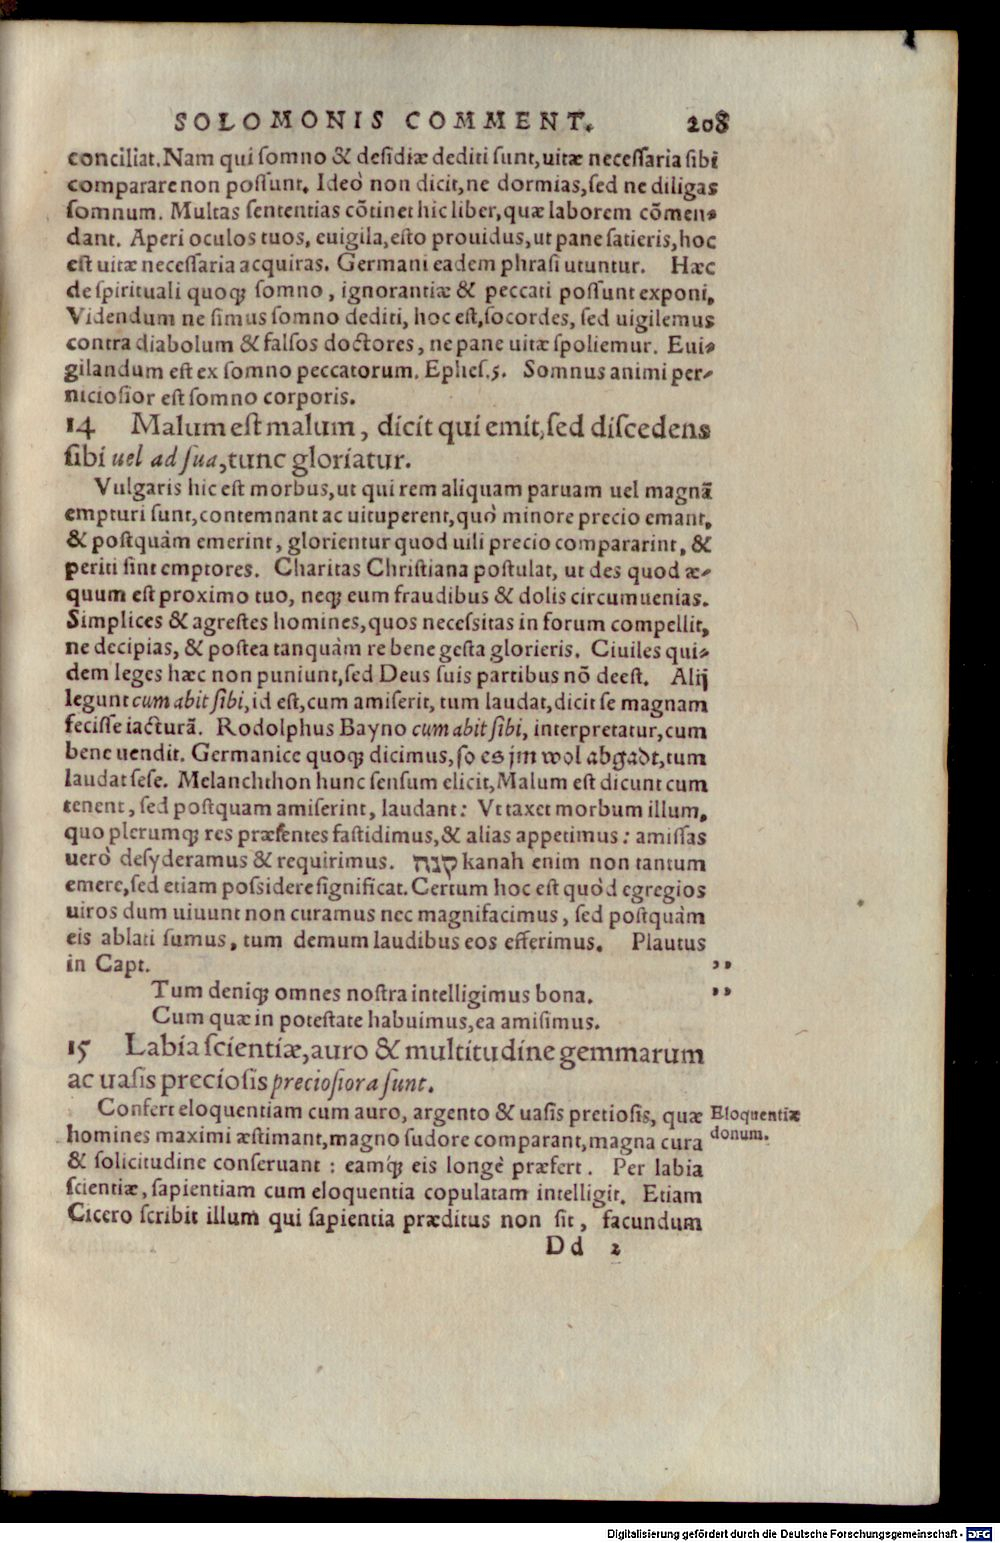 SOLOMONIS COMMENT. 208
conciliat. Nam qui somno & desidiæ dediti sunt, uitæ necessaria sibi
comparare non possunt. Ideò non dicit, ne dormias, sed ne diligas
somnum. Multas sententias cõtinet hic liber, quæ laborem cõmen-
dant. Aperi oculos tuos, euigila, esto prouidus, ut pane satieris, hoc
est uitæ necessaria acquiras. Germani eadem phrasi utuntur. Hæc
de spirituali quoq; somno, ignorantiæ & peccati possunt exponi.
Videndum ne simus somno dediti, hoc est, socordes, sed uigilemus
contra diabolum & falsos doctores, ne pane uitæ spoliemur. Eui-
gilandum est ex somno peccatorum. Ephes. 5. Somnus animi per-
niciosior est somno corporis.
14 Malum est malum, dicit qui emit, sed discedens
sibi uel ad sua, tunc gloriatur.
Vulgaris hic est morbus, ut qui rem aliquam paruam uel magnã
empturi sunt, contemnant ac uituperent, quò minore precio emant,
& postquàm emerint, glorientur quod uili precio compararint, &
periti sint emptores. Charitas Christiana postulat, ut des quod æ-
quum est proximo tuo, neq; eum fraudibus & dolis circumuenias.
Simplices & agrestes homines, quos necessitas in forum compellit,
ne decipias, & postea tanquàm re bene gesta glorieris. Ciuiles qui-
dem leges hæc non puniunt, sed Deus suis partibus nõ deest. Alij
legunt cum abit sibi, id est, cum amiserit, tum laudat, dicit se magnam
fecisse iacturã. Rodolphus Bayno cum abit sibi, interpretatur, cum
bene uendit. Germanice quoq; dicimus, so es jm wol abgadt, tum
laudat sese. Melanchthon hunc sensum elicit, Malum est dicunt cum
tenent, sed postquam amiserint, laudant: Vt taxet morbum illum,
quo plerumq; res præsentes fastidimus, & alias appetimus: amissas
uerò desyderamus & requirimus. קנה kanah enim non tantum
emere, sed etiam possidere significat. Certum hoc est quòd egregios
uiros dum uiuunt non curamus nec magnifacimus, sed postquàm
eis ablati sumus, tum demum laudibus eos efferimus. Plautus
in Capt. ,,
Tum deniq; omnes nostra intelligimus bona. ,,
Cum quæ in potestate habuimus, ea amisimus.
15 Labia scientiæ, auro & multitudine gemmarum
ac uasis preciosis preciosiora sunt.
Confert eloquentiam cum auro, argento & uasis pretiosis, quæ Eloquentiæ
homines maximi æstimant, magno sudore comparant, magna cura donum.
& solicitudine conseruant: eamq́; eis longè præfert. Per labia
scientiæ, sapientiam cum eloquentia copulatam intelligit. Etiam
Cicero scribit illum qui sapientia præditus non sit, facundum
Dd 2
Digitalisierung gefördert durch die Deutsche Forschungsgemeinschaft - DFG